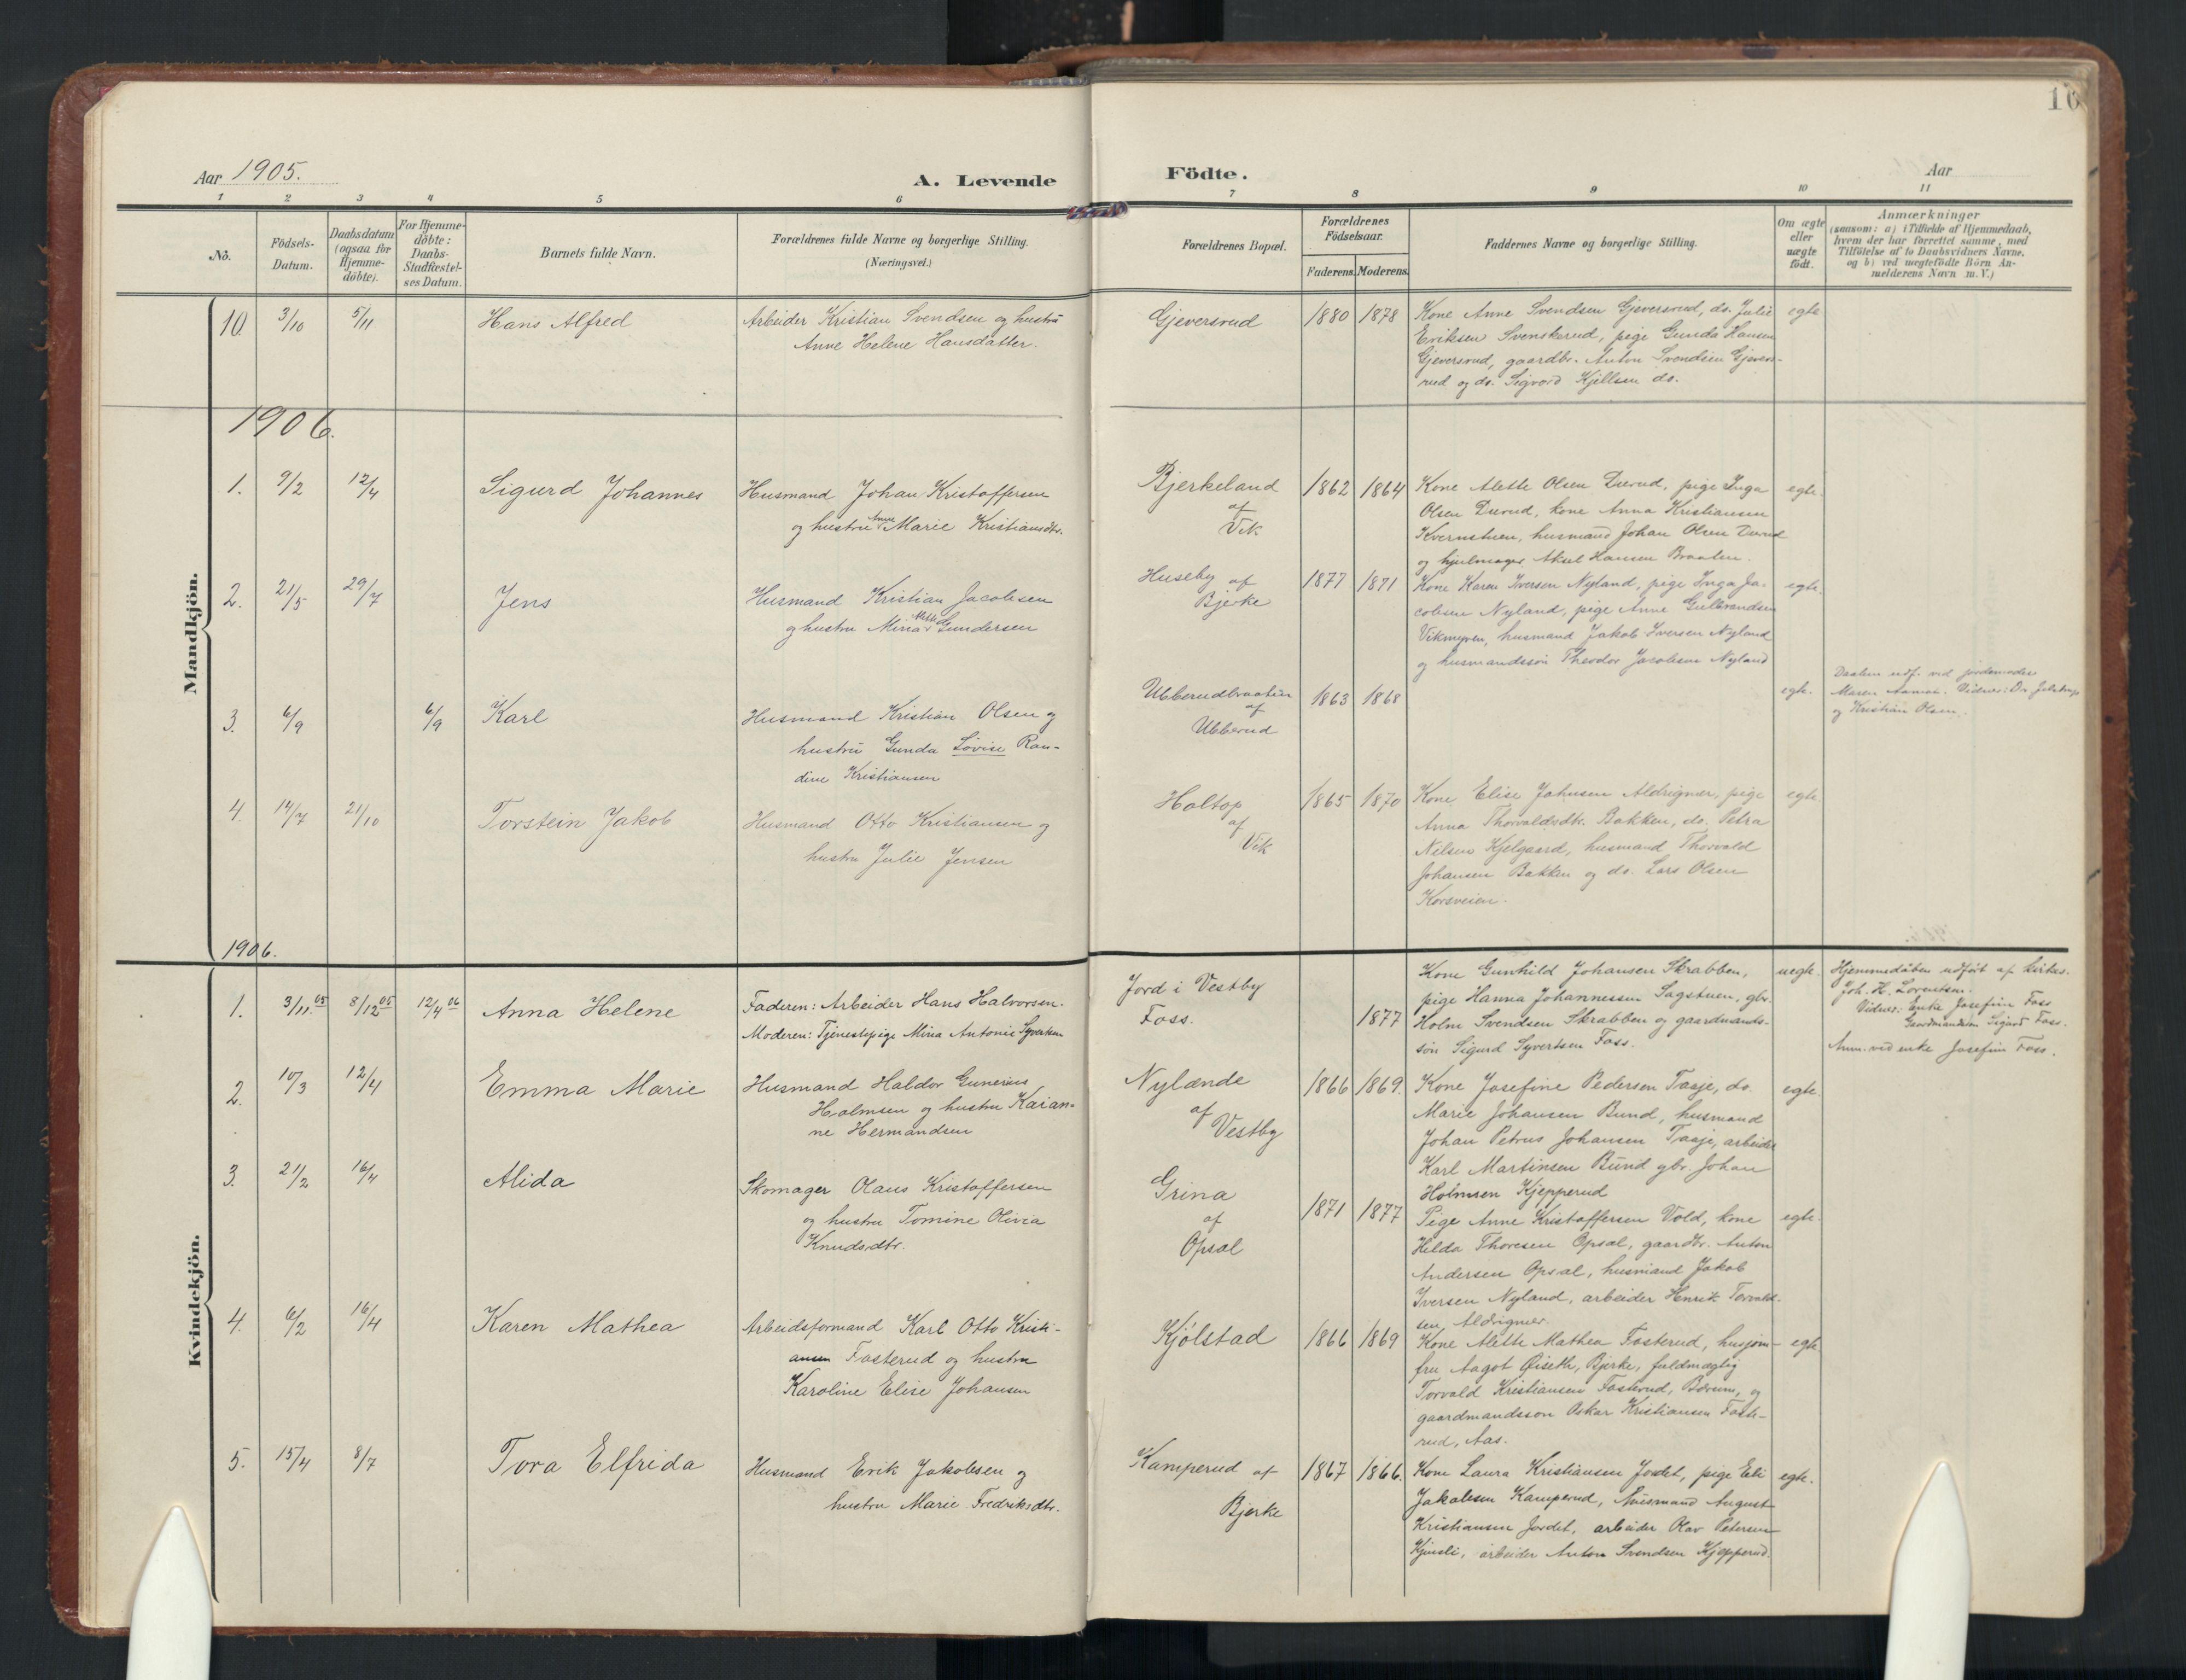 10
Aar 1905.
A. Levende
Födte.
Aar
1 2 3 4 5 6 7 8 9 10 11
No.
Födsels-
Datum.
Daabsdatum
(ogsaa for
Hjemme-
döbte).
For Hjemme-
döbte:
Daabs-
Stadfæstel-
ses Datum.
Barnets fulde Navn.
Forældrenes fulde Navne og borgerlige Stilling.
(Næringsvei.)
Forældrenes Bopæl.
Forældrenes
Födselsaar.
Faderens. Moderens.
Faddernes Navne og borgerlige Stilling.
Om ægte
eller
uægte
födt.
Anmærkninger
(saasom: a) i Tilfælde af Hjemmedaab,
hvem der har forrettet samme, med
Tilföielse af to Daabsvidners Navne,
og b) ved uægtefödte Börn An-
melderens Navn m. V.)
Mandkjön.
10. 3/10 5/11 Hans Alfred
Arbeider Kristian Svendsen og hustru
Anne Helene Hansdatter.
Gjeversrud 1880 1878
Kone Anne Svendsen Gjeversrud, do. Julie
Eriksen Svenskerud, pige Gunda Hansen
Gjeversrud, gaardbr. Anton Svendsen Gjevers-
rud og do. Sigvord Kjellsen do.
egte
1906.
1. 9/2 12/4 Sigurd Johannes
Husmand Johan Kristoffersen
og hustru Anne Marie Kristiansdtr.
Bjerkeland
af
Vik
1862 1864
Kone Alette Olsen Durud, pige Inga
Olsen Durud, kone Anna Kristiansen
Kvernstuen, husmand Johan Olsen Durud
og hjulmager Aksel Hansen Braaten.
egte.
2. 21/5 29/7 Jens
Husmand Kristian Jacobsen
og hustru Mina Mathea Gundersen
Huseby af
Bjerke
1877 1871
Kone Karen Iversen Nyland, pige Inga Ja-
cobsen Nyland, pige Anne Gulbrandsen
Vikmyren, husmand Jakob Iversen Nyland
og husmandssøn Theodor Jacobsen Nyland
egte.
3. 6/9 6/9 Karl
Husmand Kristian Olsen og
hustru Gunda Lovise Ran-
dine Kristiansen
Ubberudbraaten
af
Ubberud
1863 1868
egte.
Daaben udf. ved jordemoder
Maren Aamot. Vidner: Dr. Jelstrup
og Kristian Olsen.
4. 14/7 21/10 Torstein Jakob
Husmand Otto Kristiansen og
hustru Julie Jensen
Holtop
af
Vik
1865 1870
Kone Elise Johnsen Aldrigmer, pige
Anna Thorvaldsdtr. Bakken, do. Petra
Nilsen Kjelgaard, husmand Thorvald
Johansen Bakken og do. Lars Olsen
Korsveien.
egte
1906.
Kvindekjön.
1. 3/11.05 8/12 05 12/4 06 Anna Helene
Faderen: Arbeider Hans Halvorsen.
Moderen: Tjenestepige Mina Antonie Syvertsen
Jord i Vestby
Foss.
1877
Kone Gunhild Johansen Skrabben,
pige Hanna Johannessen Sagstuen, gbr.
Holm Svendsen Skrabben og gaardmands-
søn Sigurd Syvertsen Foss.
uegte.
Hjemmedåben udført af kirkes.
Joh. H. Lorentsen.
Vidner: Enke Josefine Foss
Gaardmandssøn Sigurd Foss.
Anm. ved enke Josefine Foss.
2. 10/3 12/4 Emma Marie
Husmand Haldor Gunerius
Holmsen og hustru Karan-
ne Hermandsen
Nylænde
af
Vestby
1866 1869.
Kone Josefine Pedersen Taaje, do.
Marie Johansen Bund, husmand
Johan Petrus Johansen Taaje, arbeider
Karl Martinsen Bund gbr. Johan
Holmsen Kjepperud
egte.
3. 21/2 16/4 Alida
Skomager Olaus Kristoffersen
og hustru Tomine Olivia
Knudsdtr.
Grina
af
Opsal
1871 1877
Pige Anne Kristoffersen Vold, kone
Helda Thoresen Opsal, gaardbr. Anton
Andersen Opsal, husmand Jakob
Iversen Nyland, arbeider Henrik Torvald-
sen Aldrigmer.
egte.
4. 6/2 16/4 Karen Mathea
Arbeidsformand Karl Otto Kristi-
ansen Fosterud og hustru
Karoline Elise Johansen
Kjølstad
1866 1869
Kone Alette Mathea Fosterud, husjom-
fru Aagot Øiseth, Bjerke, fuldmægtig
Torvald Kristiansen Fosterud, Bærum, og
gaardmandssøn Oskar Kristiansen Foste-
rud, Aas.
egte
5. 15/4 8/7 Tora Elfrida
Husmand Erik Jakobsen og
hustru Marie Fredriksdtr.
Kamperud af
Bjerke
1867 1866.
Kone Laura Kristiansen Jordet, pige Eli
Jakobsen Kamperud, husmand August
Kristiansen Jordet, arbeider Olav Petersen
Kjinsli, arbeider Anton Svendsen Kjepperud.
egte.